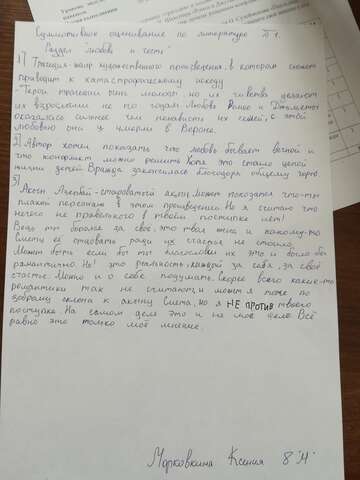 Суммативное оценивание по литературе
Раздел "Любовь и честь"
1) Трагедия-жанр художественного произведения, в котором сюжет
приводит к катастрофическому исходу
Герои трагедии очень молоды но их чувства делают
их взрослыми не по годам Любовь Ромео и Джульетты
оказалась сильнее чем ненависть их семей, с этой
любовью они и умерли в Вероне.
2) Автор хотел показать что любовь бывает вечной и
что конфликт можно решить Хотя это стало ценой
жизни детей Вражда закончилась благодаря общему горю
3) Акын Ляпбай-староватый акын Может показаться что-ты
плохой персонаж в этом произведении. Но я считаю что
ничего не правельного в твоём поступке нет!
Ведь ты боролся за своё, это твоя жена и какому-то
Смету её отдовать ради их счастья не стоило.
Может быть если бог ты благословил их это и было-бы
романтично. Но! это реальность каждой за себя, за своё
счастье. Можно и о себе подумать. Скорее всего какие-то
романтики так не считают, и может я тоже по
доброму склона к акыну Смета, но я НЕ ПРОТИВ твоего
поступка. На самом деле это и не моё дело. Всё
равно это только моё мнение.
Морковкина Ксения 8 "М"